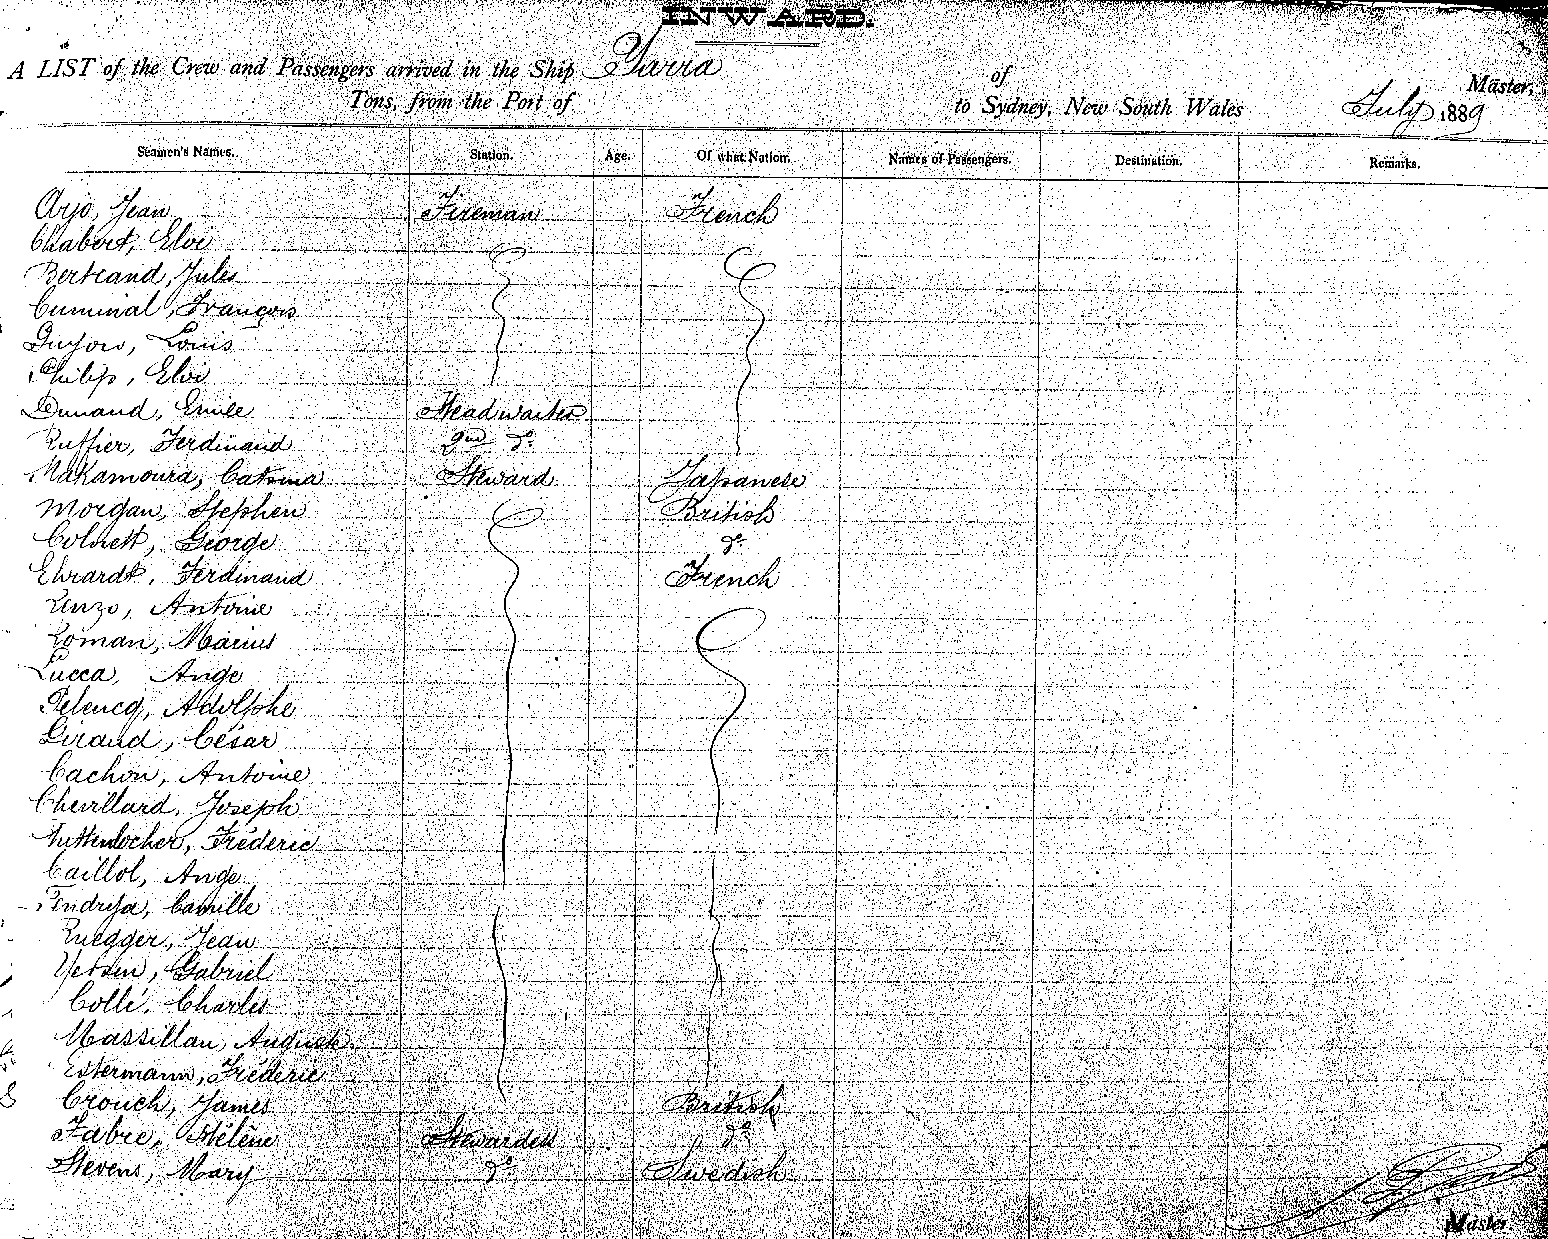 INWARD.
A LIST of the Crew and Passengers arrived in the Ship Yarra of Master,
Tons, from the Port of to Sydney, New South Wales July 1889
Seamen's Names. Station. Age. Of what Nation. Names of Passengers. Destination. Remarks.
Arjo, Jean Fireman French
Chabert, Eloi
Bertrand, Jules
Cuminal, François
Guyon, Louis
Philip, Eloi
Dunand, Emile Headwaiter
Ruffier, Ferdinand 2nd do
Nakamoura, Steward Japanese
Morgan, Stephen British
Colnett, George do
Ehrardt, Ferdinand French
Lenzo, Antoine
Roman, Marius
Lucca, Ange
Pelencq, Adolphe
Giraud, César
Cachon, Antoine
Chevillard, Joseph
Huttenlocher, Fréderic
Caillol, Ange
Camille
Ruegger, Jean
Yersin, Gabriel
Colle, Charles
Massillan, August
Estermann, Fréderic
Crouch, James British
Fabre, Hélène Stewardess do
Stevens, Mary do Swedish
Master.